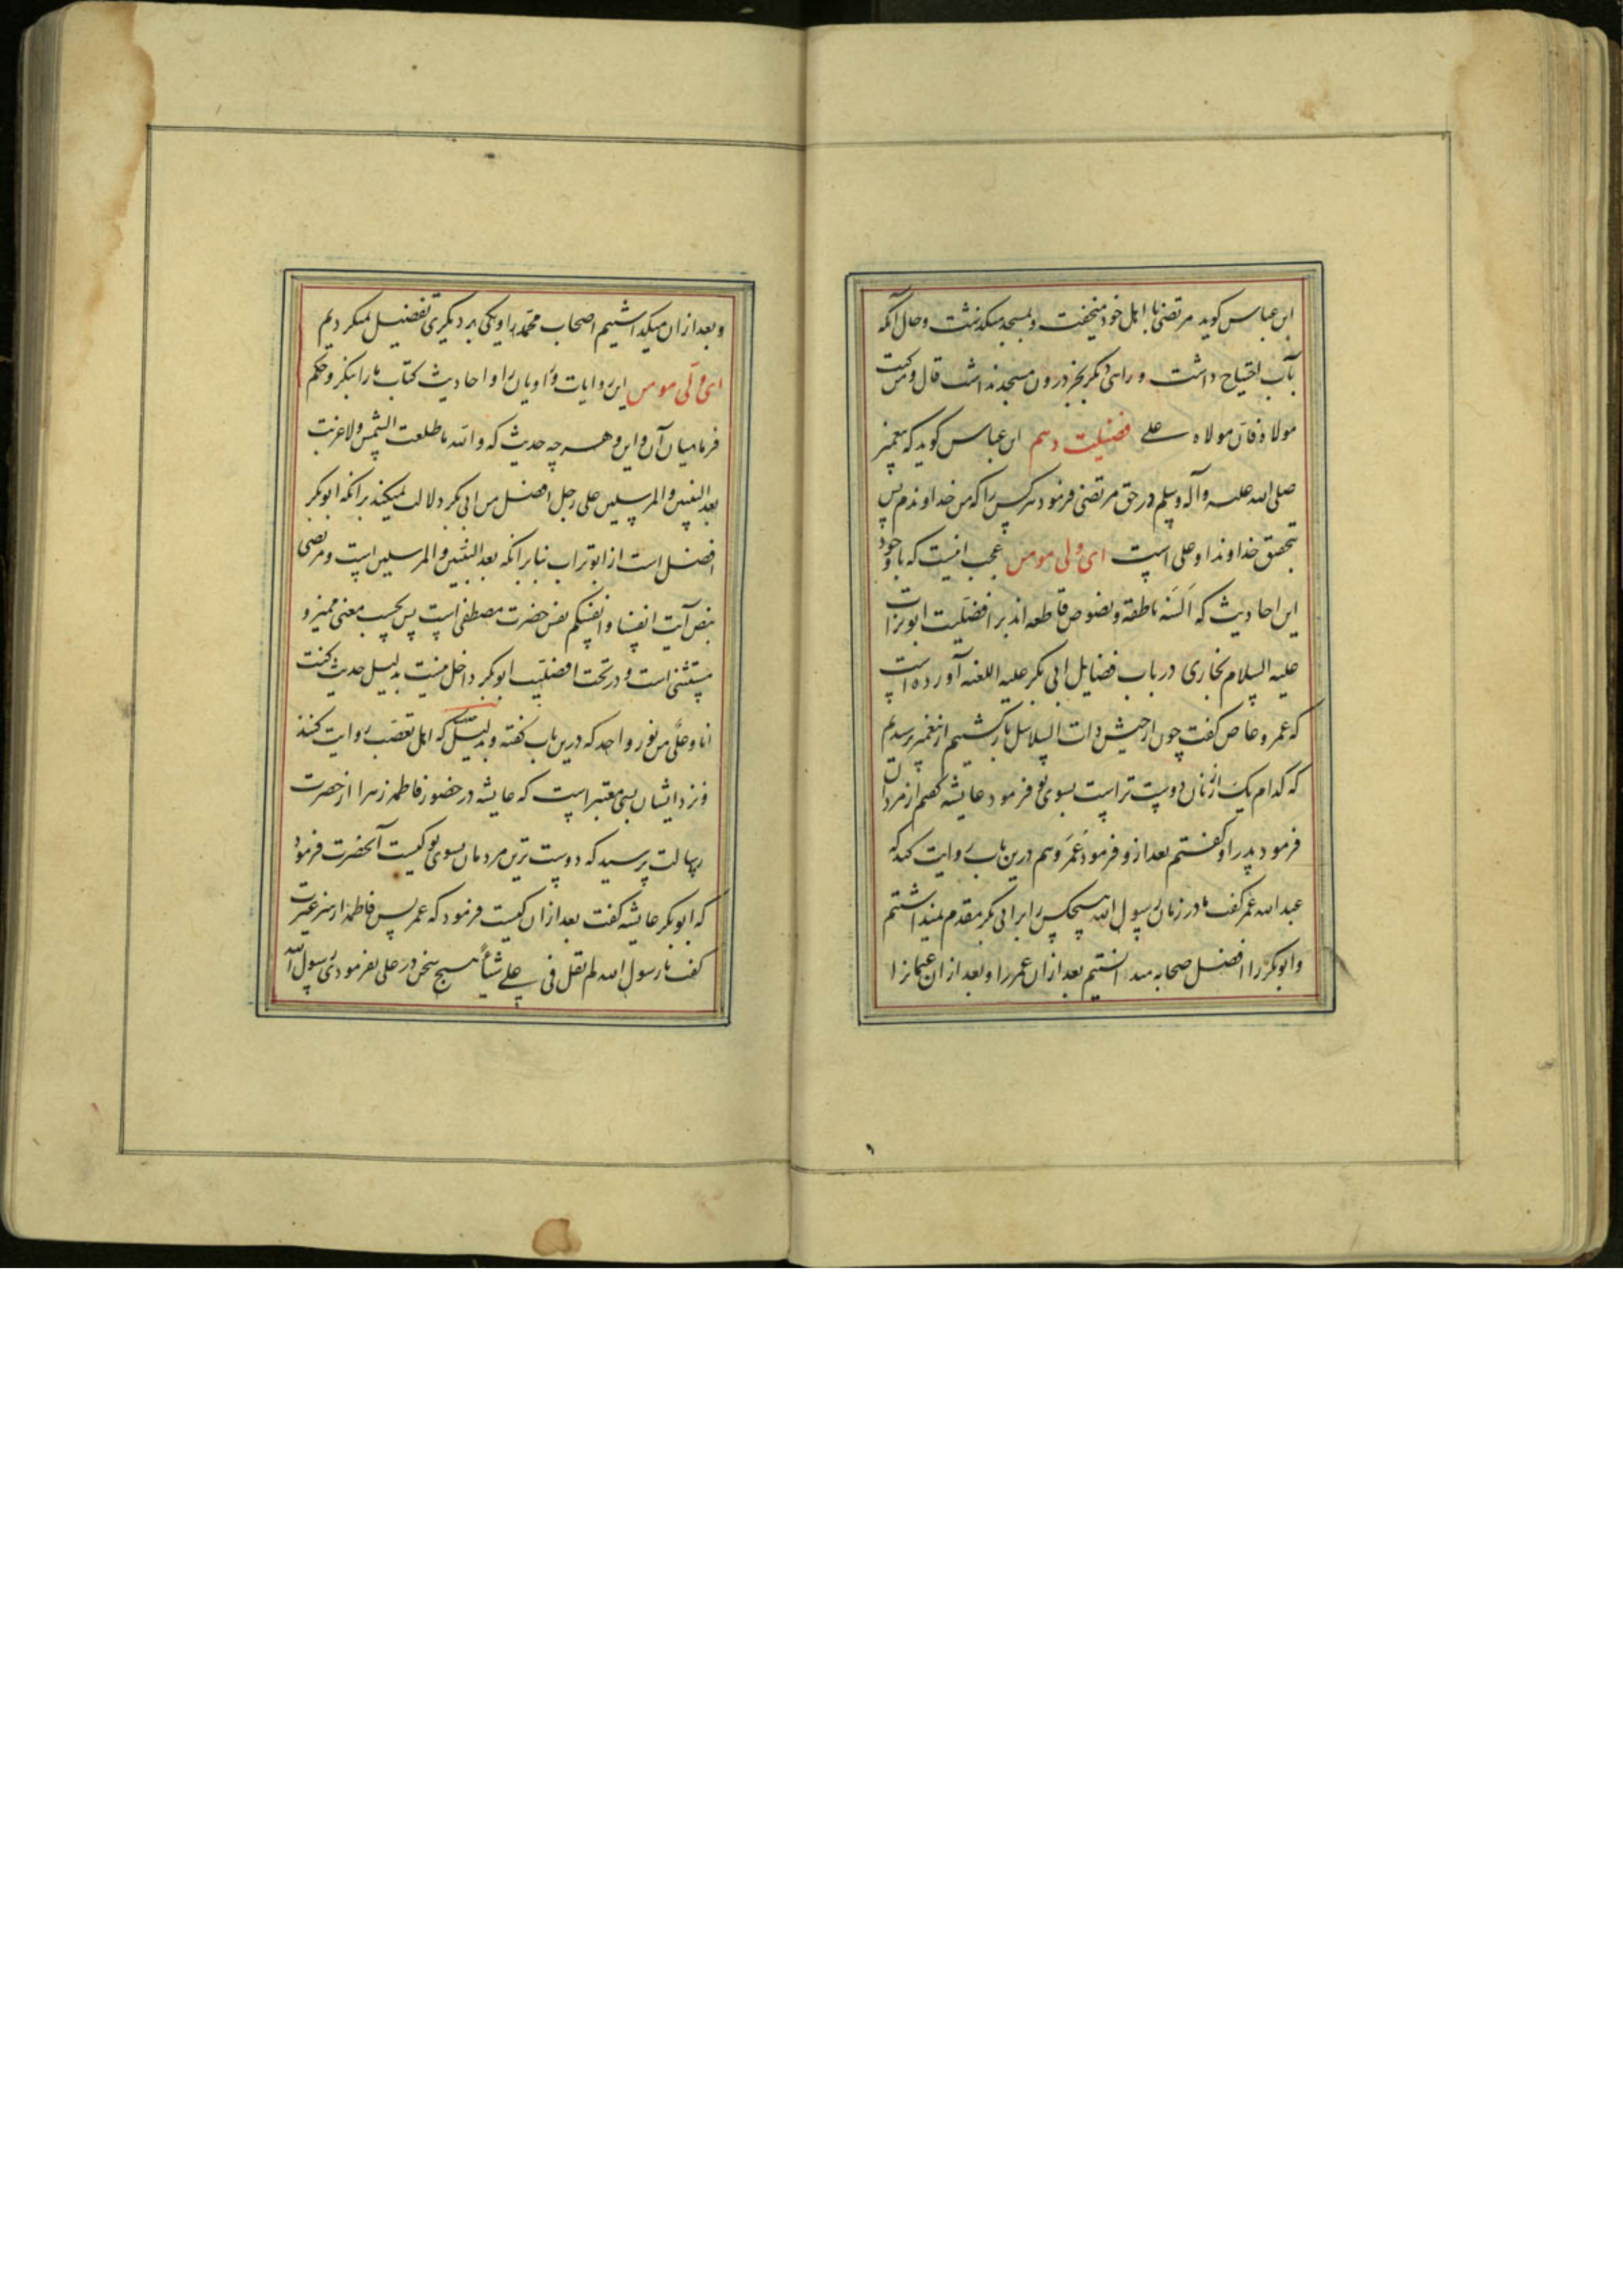 ابن عباس کوید مرتضی با اهل خود میخفت و بمسجد میکذشت و حال آنکه
بآب احتیاج داشت و راهی دیکر بجز درون مسجد نداشت قال و من کنت
مولاه فان مولاه علی فضیلت دهم ابن عباس کوید که پیغمبر
صلی الله علیه وآله وسلم در حق مرتضی فرمود هر کس را که من خداوندم پس
بتحقیق خداوند او علی است ای ولی مومن عجب انیست که با وجود
این احادیث که السنه ناطقه و نصوص قاطعه اند بر افضلیت ابوتراب
علیه السلام بخاری در باب فضایل ابی بکر علیه اللعنه آورده است
که عمرو عاص کفت چون از جیش ذات السلاسل بازکشتیم از پیغمبر پرسیدیم
که کدام یک از زنان دوست تر است بسوی تو فرمود عایشه کفتم از مردان
فرمود پدر او کفتم بعد ازو فرمود عمر و هم درین باب روایت کند که
عبدالله عمر کفت ما در زمان رسول الله هیچکس را بر ابی بکر مقدم نمیداشتیم
و ابوبکر را افضل صحابه میدانستیم بعد از ان عمر را و بعد از ان عثمانرا
و بعد از ان میکذاشتیم اصحاب محمد را و یکی بر دیکری تفضیل نمیکردیم
ای ولی مومن این روایات و راویان را و احادیث کتاب ما را بنکر و حکم
فرما میان آن و این و هر چه حدیث که والله ما طلعت الشمس ولا غربت
بعد النبیین والمرسلین علی رجل افضل من ابی بکر دلالت نمیکند بر انکه ابوبکر
افضل است از ابوتراب بنابر انکه بعد النبیین والمرسلین است و مرتضی
بنص آیت انفسنا وانفسکم نفس حضرت مصطفی است پس بحسب معنی ممیز و
مستثنی است و در تحت افضلیت ابوبکر داخل نیست بدلیل حدیث کنت
انا وعلی من نور واحد که درین باب کفته و بدلیل که اهل تعصب روایت کنند
و نزد ایشان بسی معتبر است که عایشه در حضور فاطمه زهرا از حضرت
رسالت پرسید که دوست ترین مردمان بسوی تو کیست آنحضرت فرمود
که ابوبکر عایشه کفت بعد از ان کیست فرمود که عمر پس فاطمه از سر غیرت
کفت یا رسول الله لم تقل فی علی شیأ هیچ سخن در علی نفرمودی رسول الله